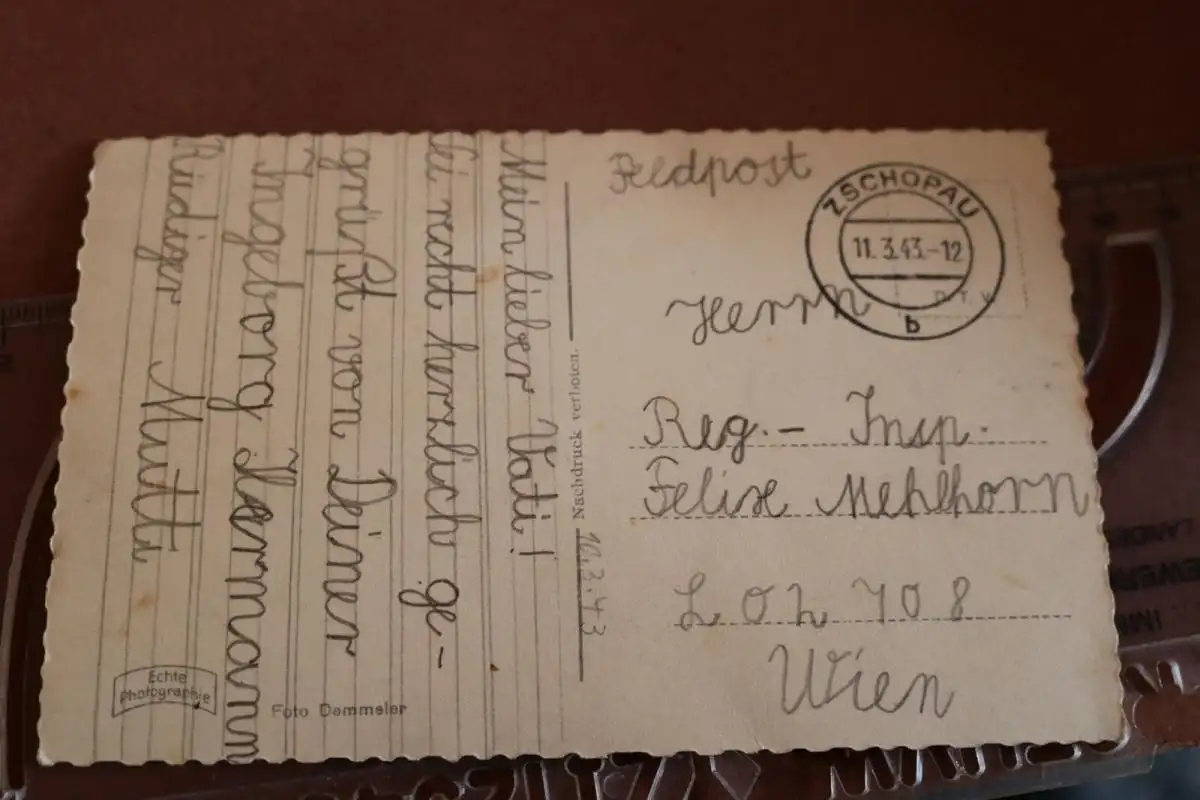 Mein lieber Vati!
Sei recht herzlich ge-
grüßt von Deiner
Ingeborg Hermann
Rüdiger Mutti
Echte
Photographie
Foto Dammeier
Nachdruck verboten.
10.3.43
Feldpost
ZSCHOPAU
11.3.43.-12
b
Herrn
Reg.- Insp.
Felix Mehlhorn
Wien